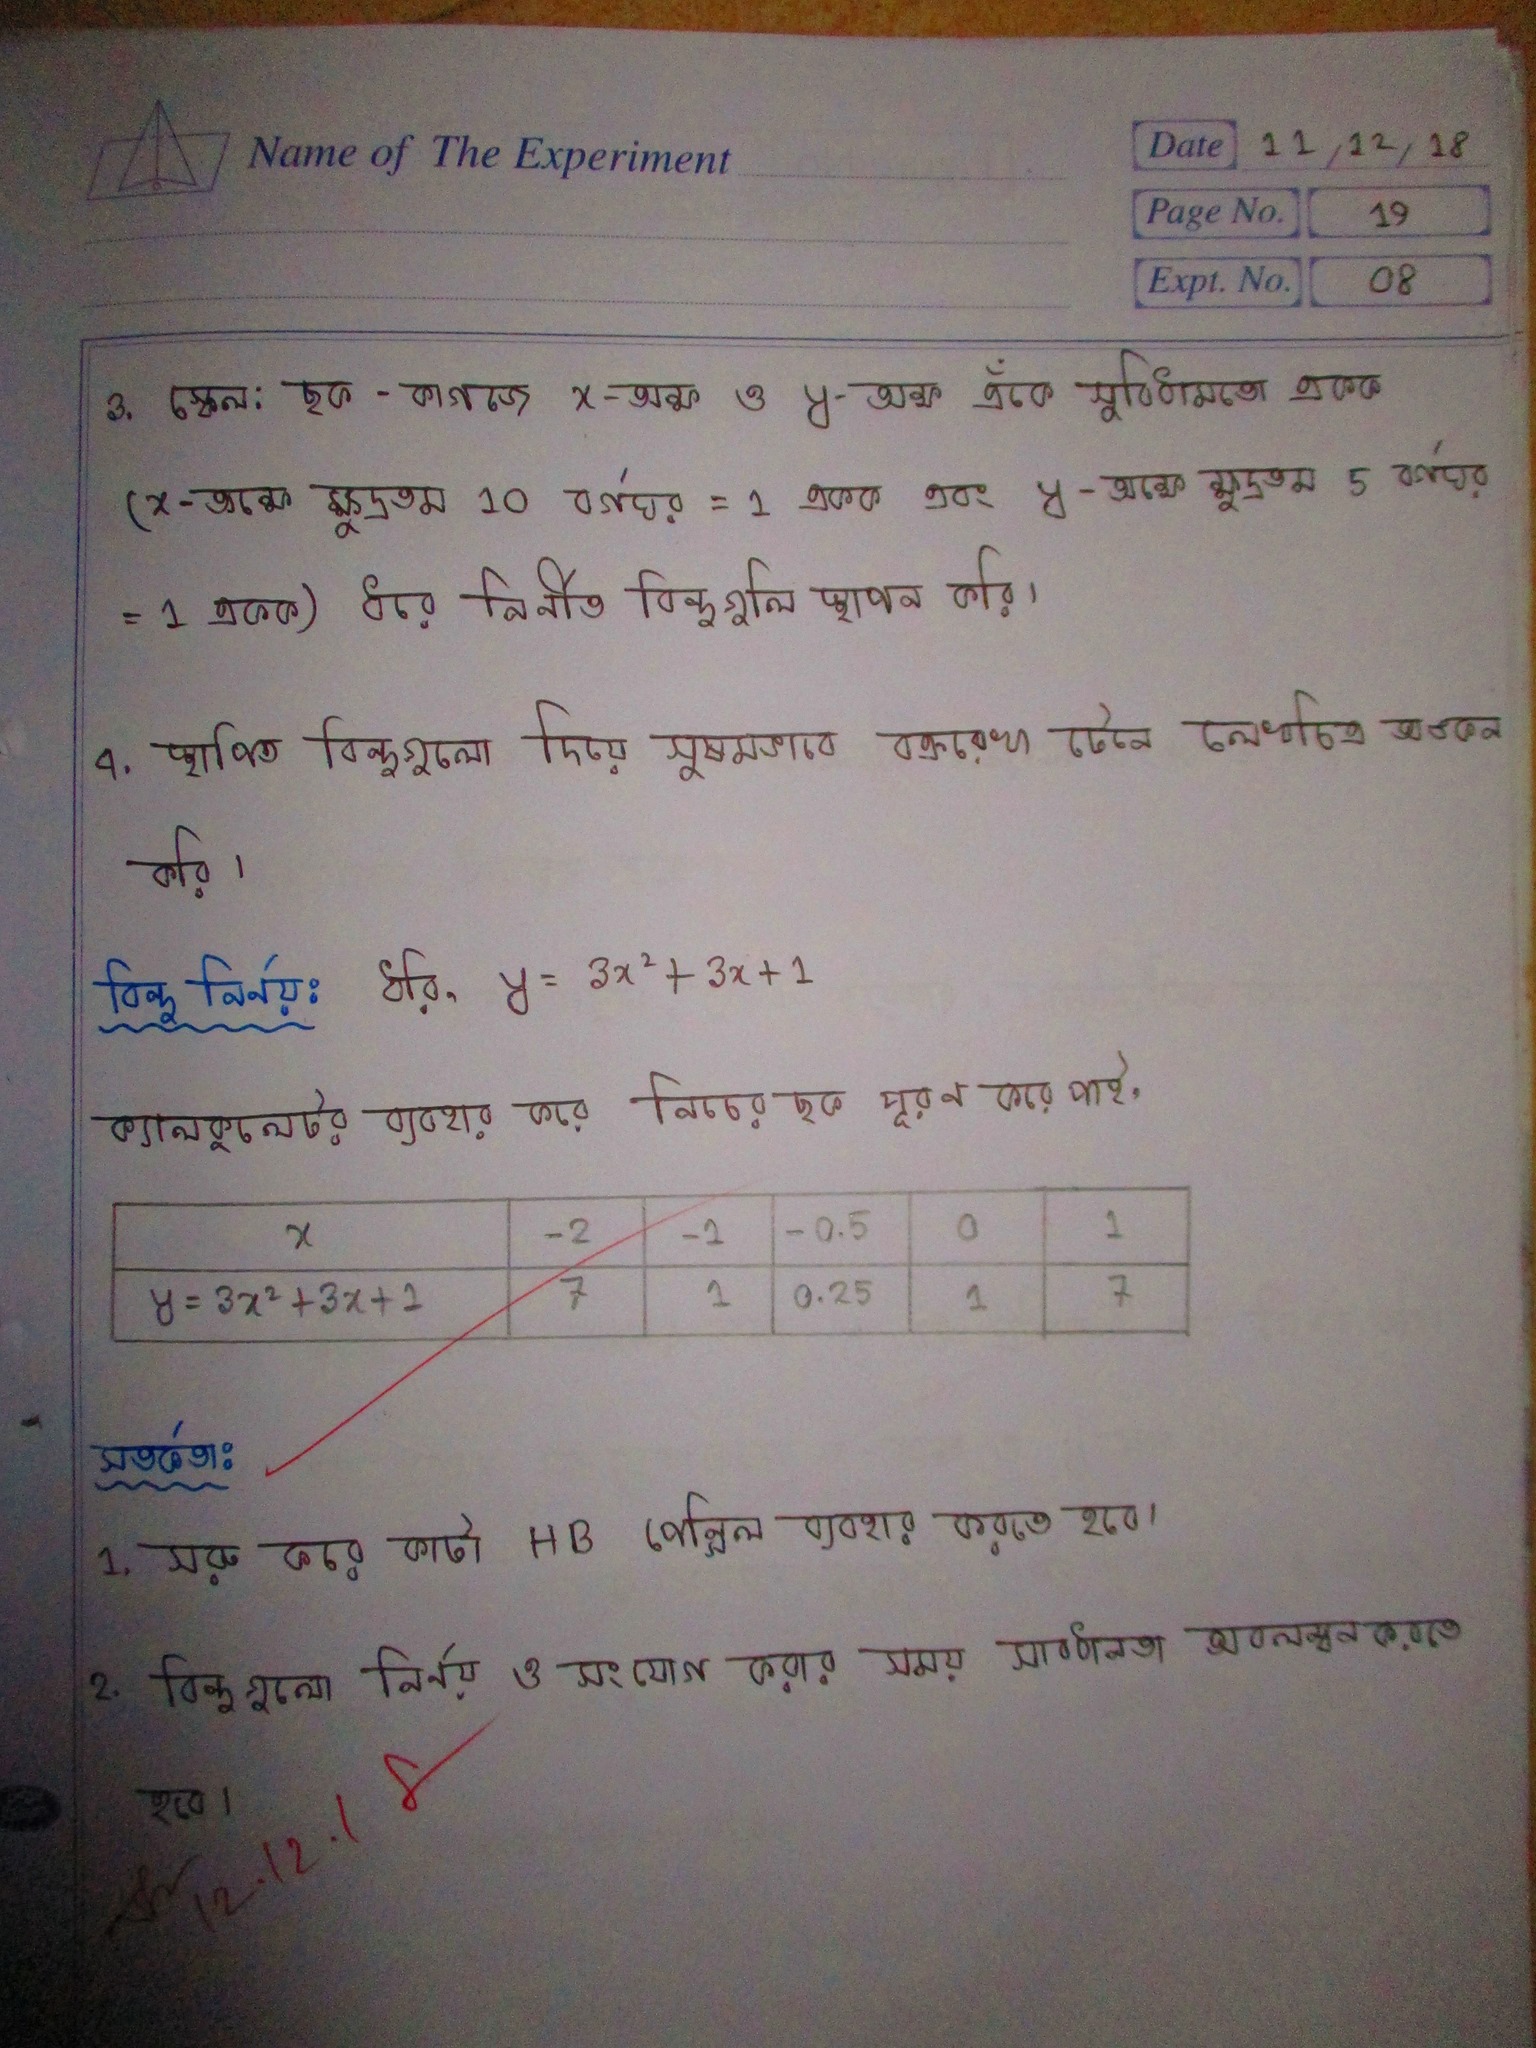 Name of The Experiment
Date 11/12/18
Page No. 19
Expt. No. 08
3. স্কেল: ছক - কাগজে x-অক্ষ ও y-অক্ষ এঁকে সুবিধামতো একক
(x-অক্ষে ক্ষুদ্রতম 10 বর্গঘর = 1 একক এবং y-অক্ষে ক্ষুদ্রতম 5 বর্গঘর
= 1 একক) ধরে নির্নীত বিন্দুগুলি স্থাপন করি।
4. স্থাপিত বিন্দুগুলো দিয়ে সুষমভাবে বক্ররেখা টেনে লেখচিত্র অঙকন
করি।
বিন্দু নির্নয়: ধরি, y = 3x² + 3x + 1
ক্যালকুলেটর ব্যবহার করে নিচের ছক পূরন করে পাই,
x -2 -1 -0.5 0 1
y = 3x² + 3x + 1 7 1 0.25 1 7
সতর্কতা:
1. সরু করে কাটা HB পেন্সিল ব্যবহার করতে হবে।
2. বিন্দুগুলো নির্নয় ও সংযোগ করার সময় সাবধানতা অবলম্বন করতে
হবে।
12.12.18